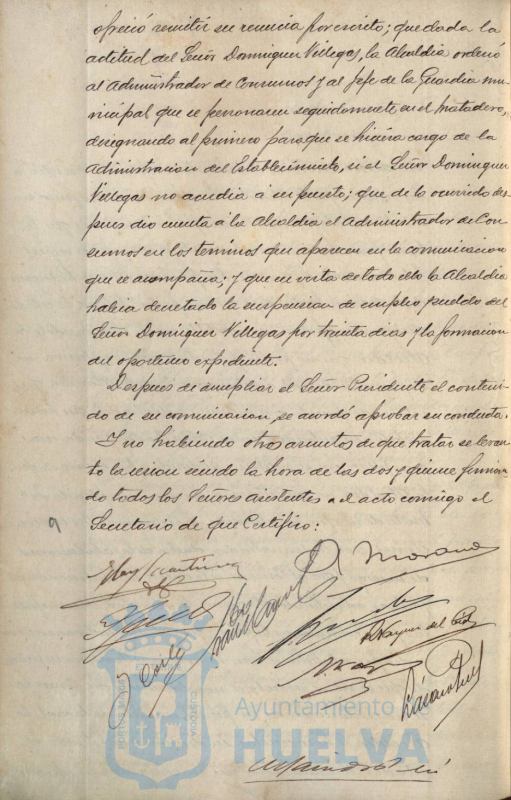 ofreció remitir su renuncia por escrito; que dada la
actitud del Señor Dominguez Villegas, la Alcaldia ordenó
al Administrador de Consumos y al Jefe de la Guardia mu-
nicipal que se personasen seguidamente en el matadero,
designando al primero para que se hiciera cargo de la
Administracion del Establecimiento, si el Señor Dominguez
Villegas no acudia á su puesto; que de lo ocurrido des-
pues dio cuenta á la Alcaldia el Administrador de Con-
sumos en los terminos que aparecen en la comunicacion
que se acompaña; y que en vista de todo ello la Alcaldia
habia decretado la suspension de empleo y sueldo del
Señor Dominguez Villegas por treinta dias y la formacion
del oportuno expediente.
Despues de ampliar el Señor Presidente el conteni-
do de su comunicacion, se acordó aprobar su conducta.
Y no habiendo otros asuntos de que tratar se levan-
tó la sesion siendo la hora de las dos y quince firman-
do todos los Señores asistentes al acto conmigo el
Secretario de que Certifico:
Morano
Vazquez del Cid
Coell
PORTUS MARIS
CUSTODIA
Ayuntamiento de
HUELVA